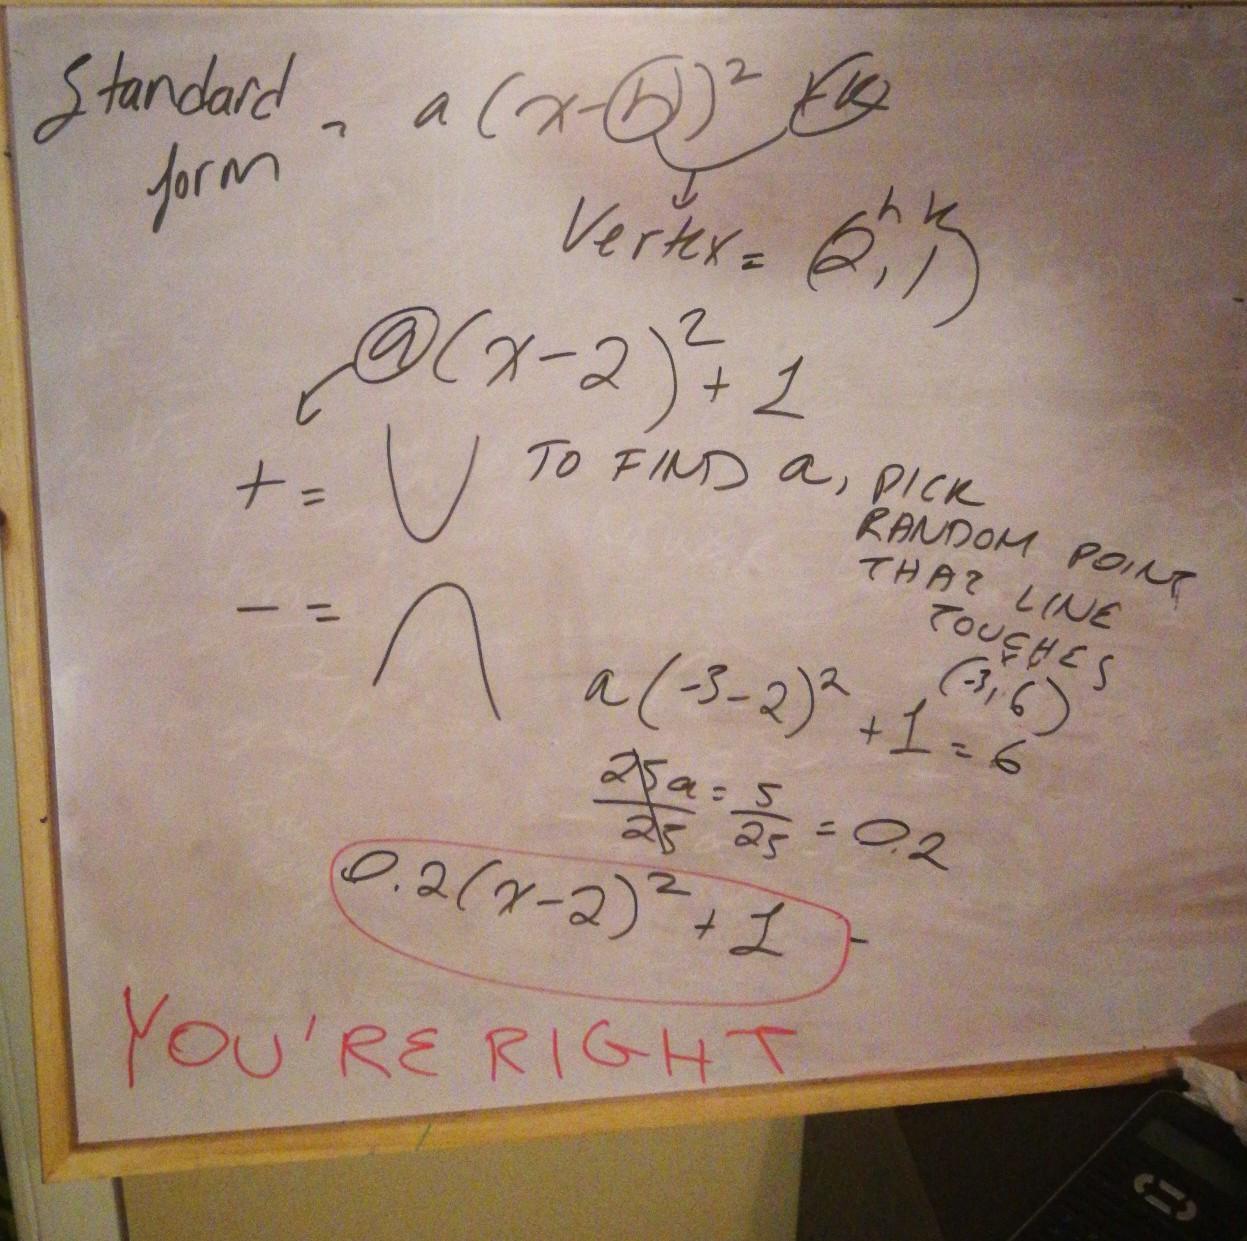 Standard form = a(x-h)² +k
Vertex = (2, 1)
h k
a(x-2)² + 1
+ =
- =
TO FIND a, PICK
RANDOM POINT
THAT LINE
TOUCHES
(-3, 6)
a(-3-2)² + 1 = 6
25a/25 = 5/25 = 0.2
0.2(x-2)² + 1
YOU'RE RIGHT